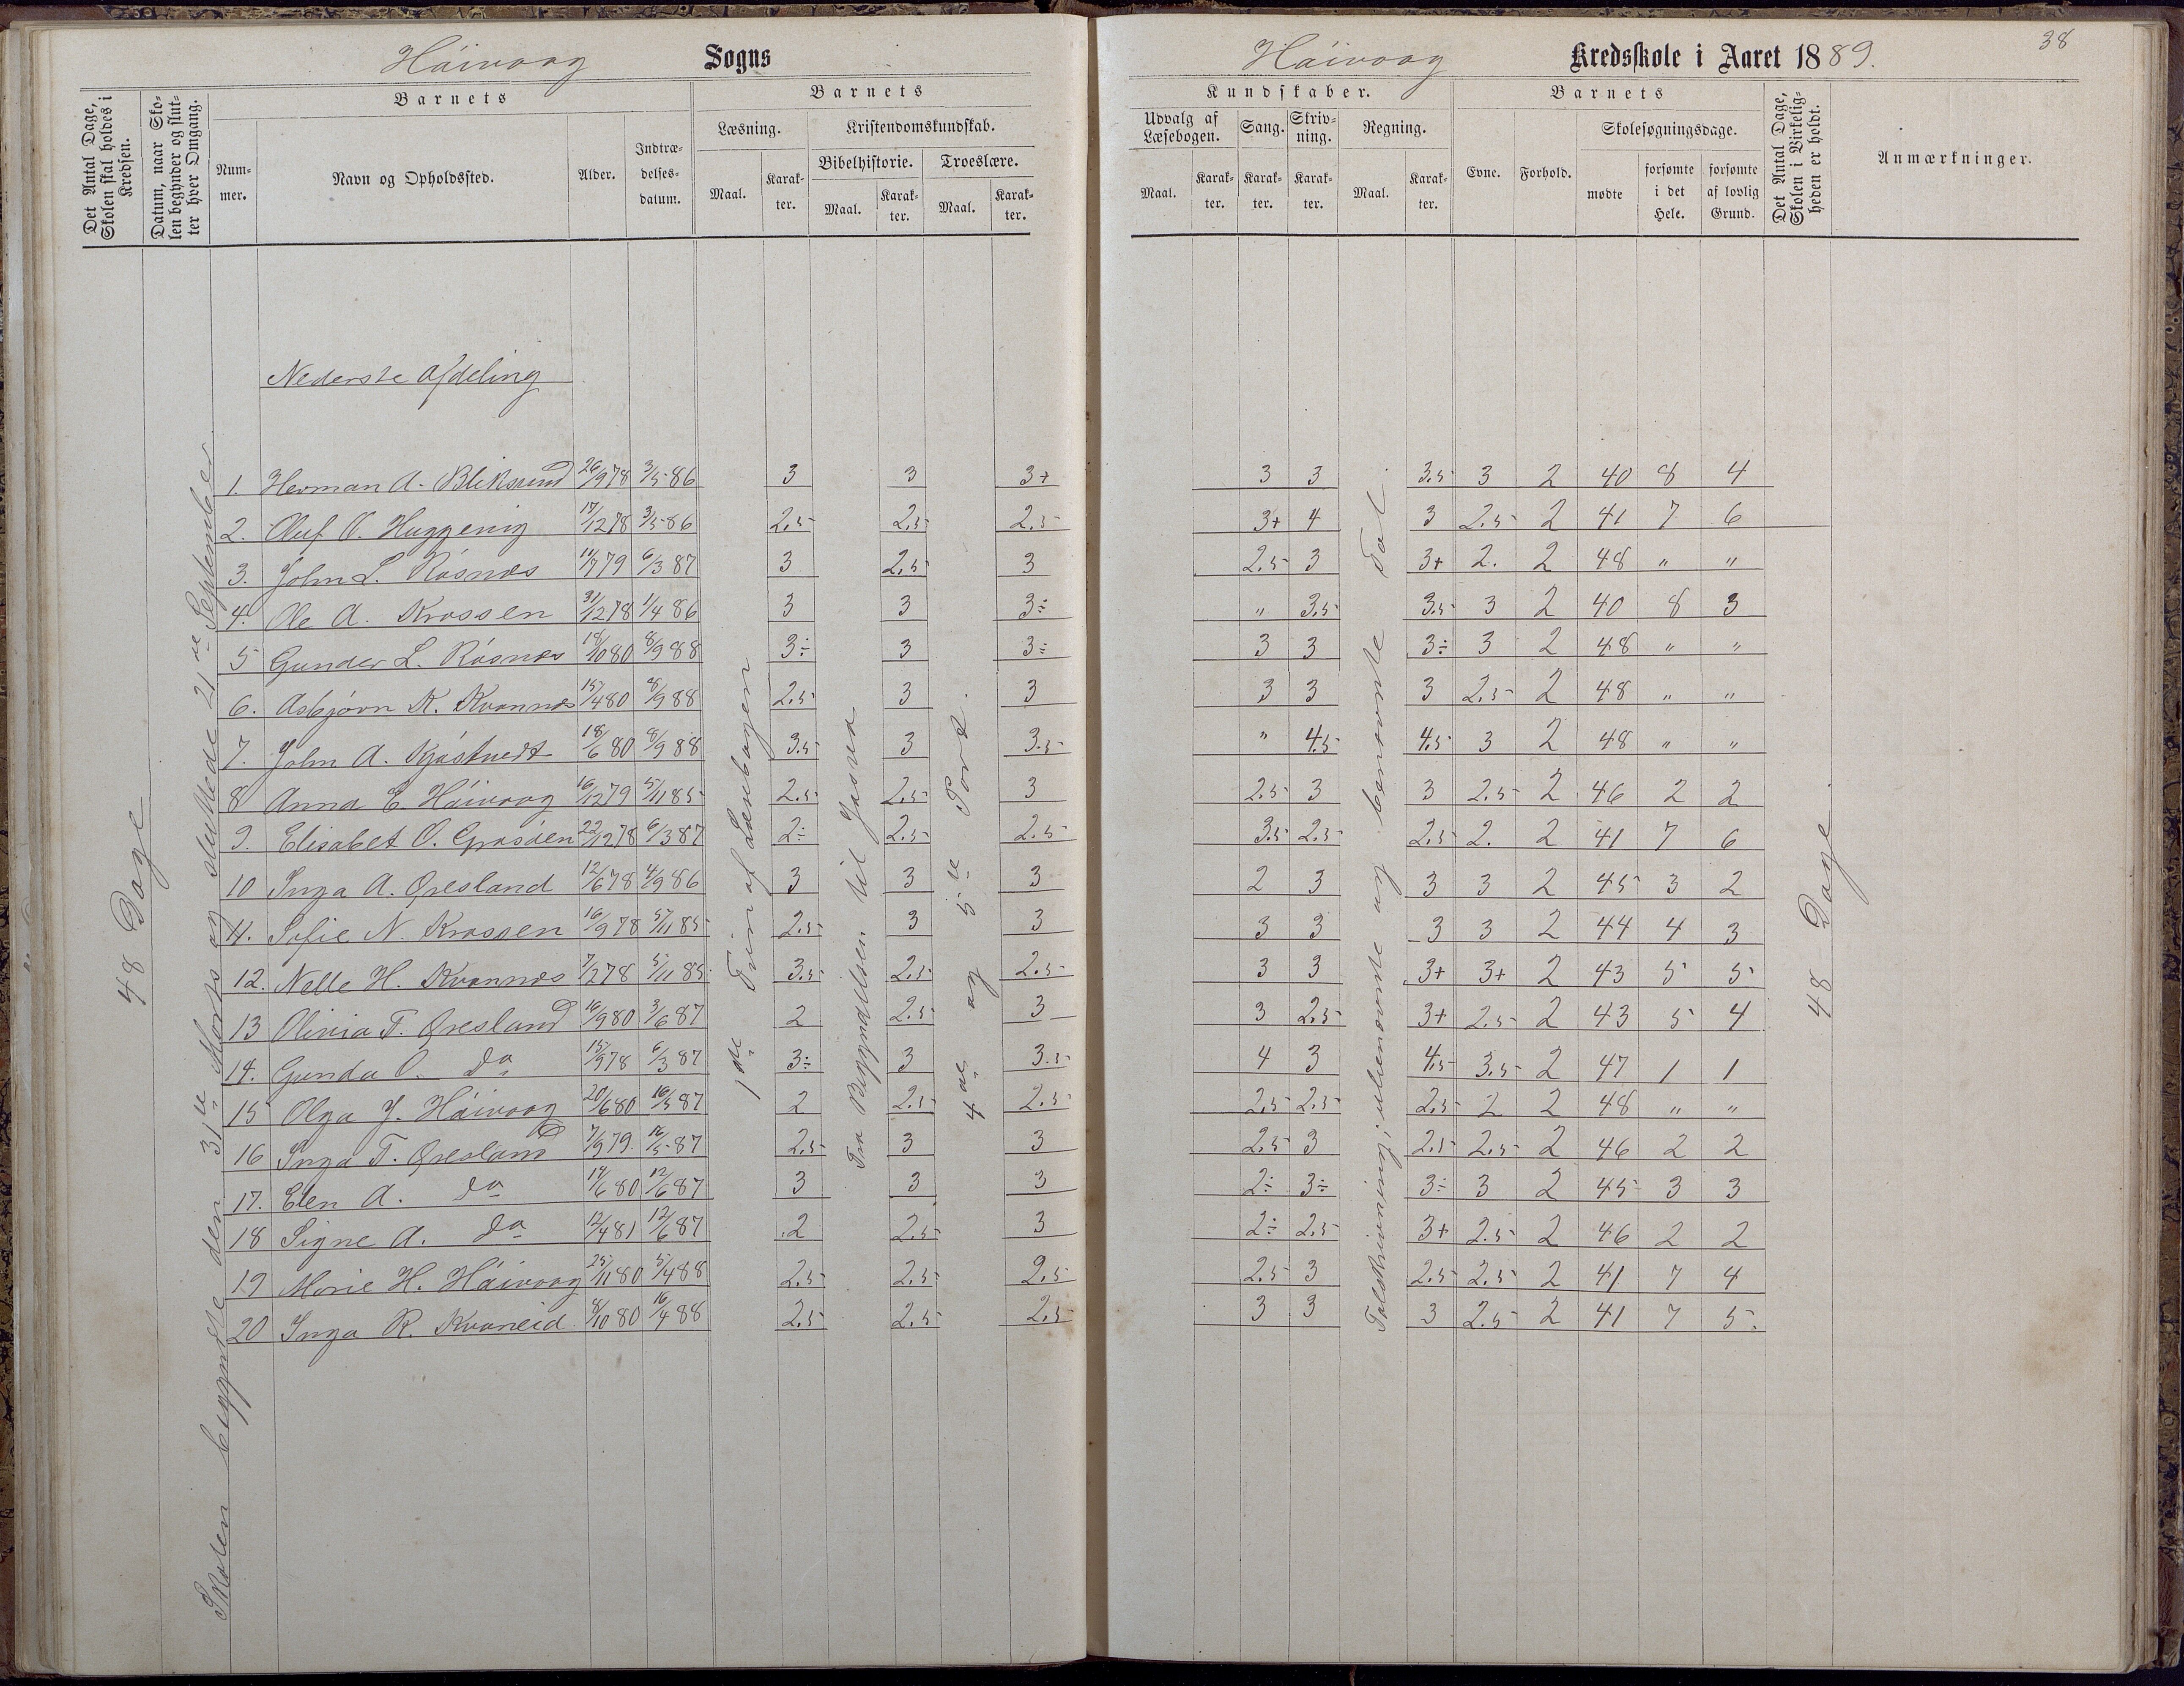 Háivaag Sogns
Háivaag Kredsskole i Aaret 1889.
38
Det Antal Dage, Skolen skal holdes i Kredsen.
Datum, naar Skolen begynder og slutter hver Omgang.
Barnets
Nummer.
Navn og Opholdssted.
Alder.
Indtrædelsesdatum.
Barnets
Læsning.
Maal.
Karakter.
Kristendomskundskab.
Bibelhistorie.
Maal.
Karakter.
Troeslære.
Maal.
Karakter.
Kundskaber.
Udvalg af Læsebogen.
Maal.
Karakter.
Sang.
Karakter.
Skrivning.
Karakter.
Regning.
Maal.
Karakter.
Barnets
Evne.
Forhold.
Skolesøgningsdage.
mødte
forsømte i det Hele.
forsømte af lovlig Grund.
Det Antal Dage, Skolen i Virkeligheden er holdt.
Anmærkninger.
48 Dage
Skolen begyndte den 31te Marts og sluttede 21de September
Nederste Afdeling
1ste Trin af Læsebogen
Fra Begyndelsen til Josva
4de og 5te Part.
Talskrivning; ubenævnte og benævnte Tal.
48 Dage
1. Herman A. Bliksund 26/9 78 3/5 86 3 3 3+ 3 3 3.5 3 2 40 8 4
2. Oluf O. Huggenig 17/12 78 3/5 86 2.5 2.5 2.5 3+ 4 3 2.5 2 41 7 6
3. John L. Røsnes 11/7 79 6/3 87 3 2.5 3 2.5 3 3+ 2. 2 48 " "
4. Ole A. Krossen 31/12 78 1/4 86 3 3 3÷ " 3.5 3.5 3 2 40 8 3
5 Gunder L. Røsnes 18/10 80 8/9 88 3÷ 3 3÷ 3 3 3÷ 3 2 48 " "
6. Asbjørn K. Kvannes 15/4 80 8/9 88 2.5 3 3 3 3 3 2.5 2 48 " "
7. John A. Kjøstvedt 18/6 80 8/9 88 3.5 3 3.5 " 4.5 4.5 3 2 48 " "
8 Anna E. Háivaag 16/12 79 5/11 85 2.5 2.5 3 2.5 3 3 2.5 2 46 2 2
9. Elisabet O. Grøsåen 22/12 78 6/3 87 2÷ 2.5 2.5 3.5 2.5 2.5 2. 2 41 7 6
10 Inga A. Øresland 12/6 78 4/9 86 3 3 3 2 3 3 3 2 45 3 2
11. Sofie N. Krossen 16/9 78 5/11 85 2.5 3 3 3 3 3 3 2 44 4 3
12. Nelle H. Kvannes 7/2 78 5/11 85 3.5 2.5 2.5 3 3 3+ 3+ 2 43 5 5
13 Olivia T. Øresland 16/9 80 3/6 87 2 2.5 3 3 2.5 3+ 2.5 2 43 5 4
14. Gunda O. do 15/9 78 6/3 87 3÷ 3 3.5 4 3 4.5 3.5 2 47 1 1
15 Olga J. Háivaag 20/6 80 16/5 87 2 2.5 2.5 2.5 2.5 2.5 2 2 48 " "
16 Inga T. Øresland 7/9 79 16/5 87 2.5 3 3 2.5 3 2.5 2.5 2 46 2 2
17. Elen A. do 17/6 80 12/6 87 3 3 3 2÷ 3÷ 3÷ 3 2 45 3 3
18 Signe A. do 12/4 81 12/6 87 2 2.5 3 2÷ 2.5 3+ 2.5 2 46 2 2
19 Marie H. Háivaag 25/11 80 5/4 88 2.5 2.5 2.5 2.5 3 2.5 2.5 2 41 7 4
20 Inga R. Kvaneid 8/10 80 16/4 88 2.5 2.5 2.5 3 3 3 2.5 2 41 7 5.